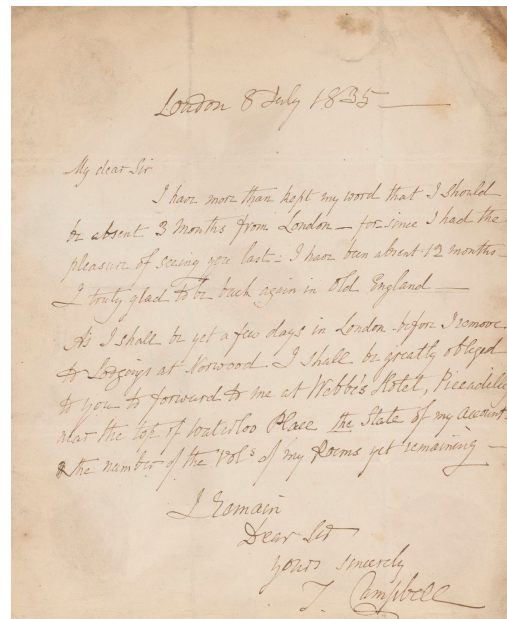 London 8 July 1835 —
My dear Sir
I have more than kept my word that I should
be absent 3 months from London — for since I had the
pleasure of seeing you last - I have been absent 12 months -
I truly glad to be back again in Old England —
As I shall be yet a few days in London before I remove
to Lodgings at Norwood I shall be greatly obliged
to you to forward to me at Webbe's Hotel, Piccadilly
near the top of Waterloo Place the State of my account
& the number of the Vols of my Poems yet remaining —
I remain
Dear Sir
yours sincerely
T. Campbell